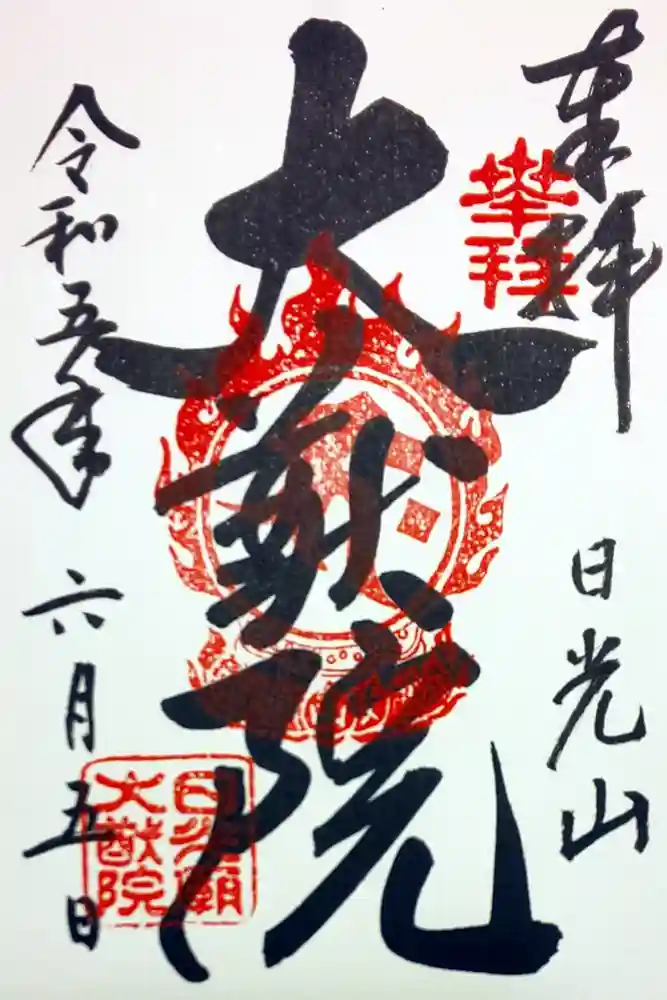 奉拝
日光山
大猷院
令和五年六月五日
奉拝
日光廟
大猷院